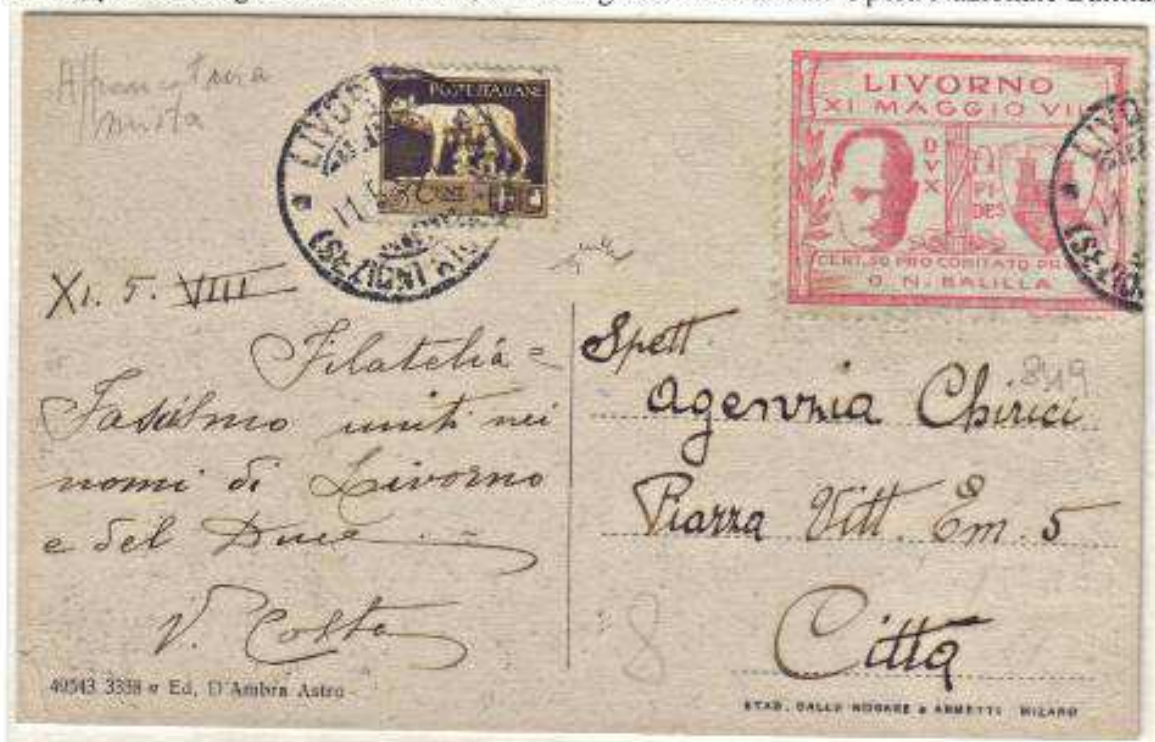 Affrancatura
mista
POSTE ITALIANE
CENT.
LIVORNO
XI MAGGIO VIII
DVX
FIDES
CENT. 50 PRO COMITATO
O. N. BALILLA
XI. 5. VIII
Filatelia =
Fascismo uniti nei
nomi di Livorno
e del Duce
V. Costa
40543 3338 Ed, D'Ambra Astro
Spett.
Agenzia Chirici
Piazza Vitt. Em. 5
Città
8
STAB. DALLE NOGARE e ARMETTI MILANO